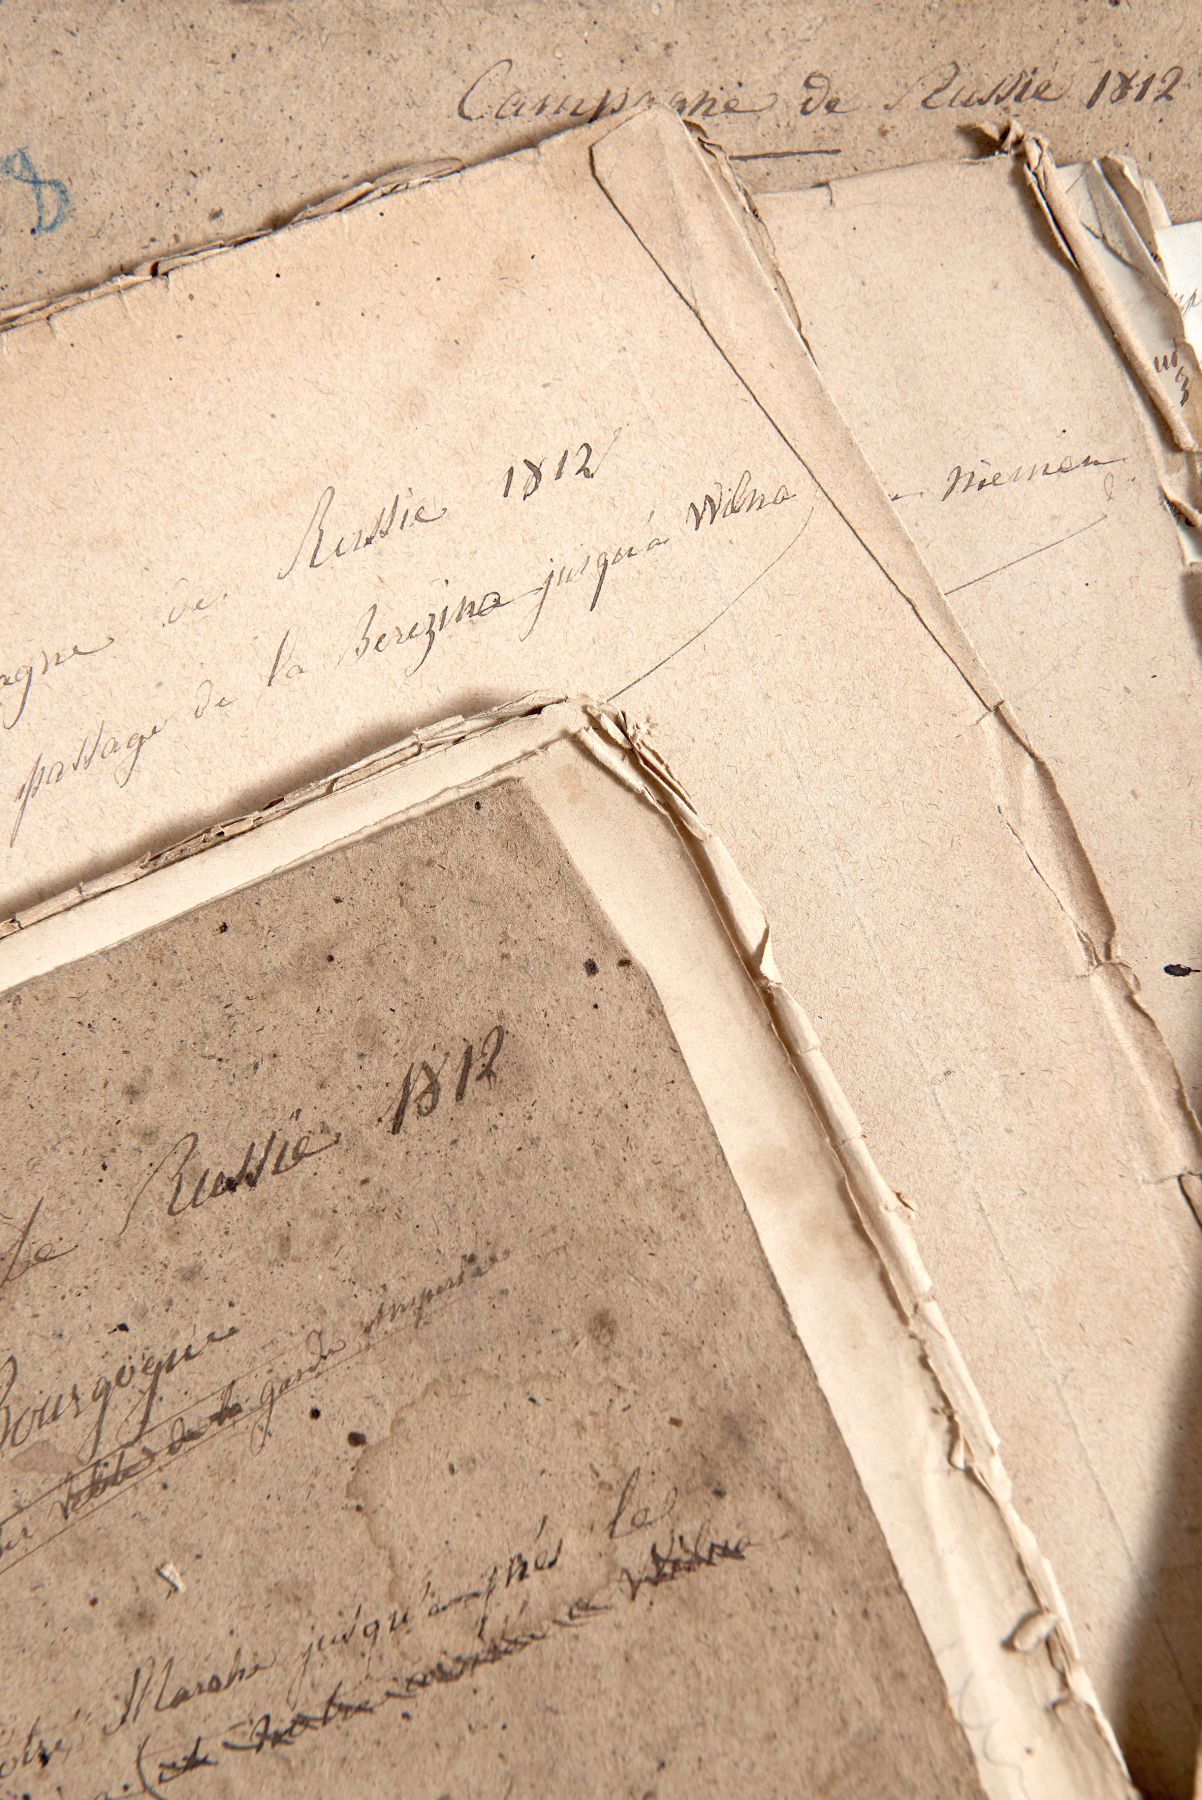 Campagne de Russie 1812
8
agne de Russie 1812
passage de la Berezina jusqu'à Wilna
Niemen
de Russie 1812
Bourgogne
Vélites de la garde impériale
Notre Marche jusqu'après le
(et notre arrivée a Wilna